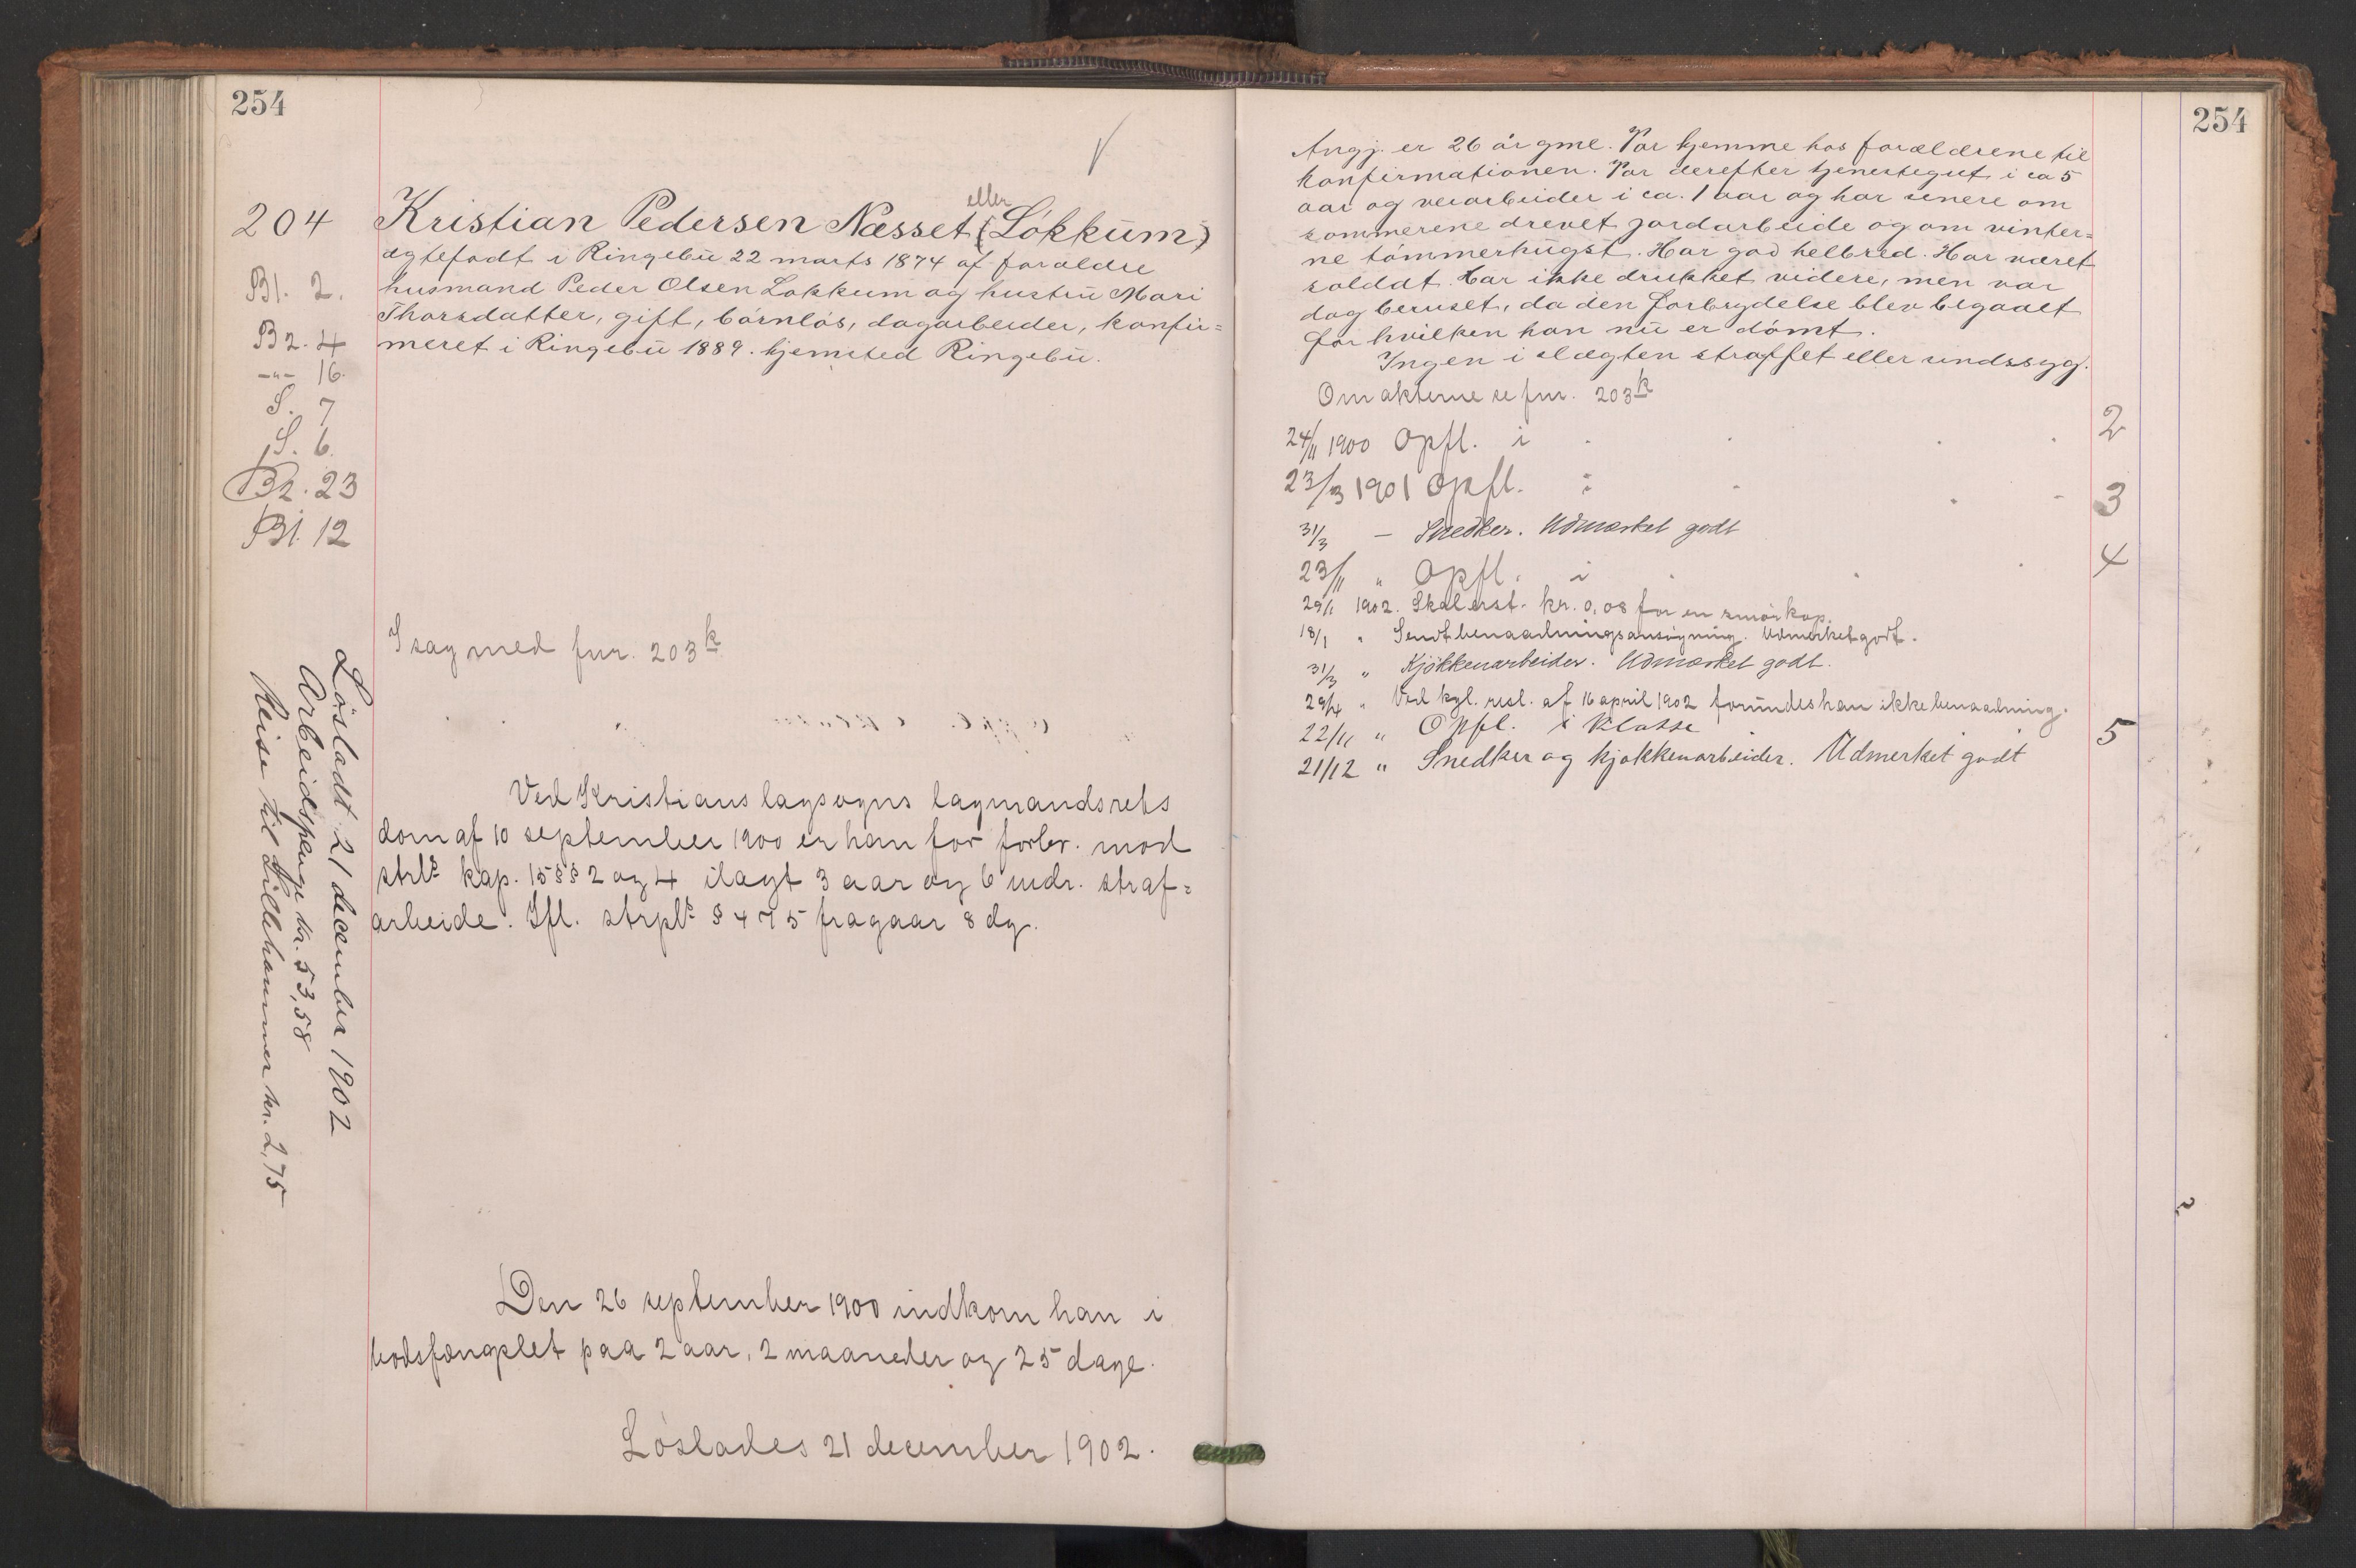 254
204
Bl. 2.
B2. 4
-"- 16.
S. 7
S. 6.
B2. 23
Bl. 12
eller
Kristian Pedersen Næsset (Lökkum)
ægtefødt i Ringebu 22 marts 1874 af forældre
husmand Peder Olsen Løkkum og hustru Mari
Thorsdatter, gift, börnlös, dagarbeider, konfir=
meret i Ringebu 1889. hjemsted Ringebu.
I sag med fnr. 203k
Ved Kristians lagsogns lagmandsrets
dom af 10 september 1900 er han for forbr. mod
strls kap. 15 §§ 2 og 4 ilagt 3 aar og 6 mdr. straf=
arbeide. Ifl. strpls § 475 fragaar 8 dg.
Den 26 september 1900 indkom han i
bodsfængslet paa 2 aar, 2 maaneder og 25 dage.
Löslades 21 december 1902.
Lösladt 21 december 1902
Arbeidspenge kr. 53,58
Reise til Lillehammer kr. 2,75
254
Angj. er 26 år gml. Var hjemme hos forældrene til
konfirmationen. Var derefter tjenestegut i ca 5
aar og veiarbeider i ca. 1 aar og har senere om
sommerene drevet jordarbeide og om vinter=
ne tömmerhugst. Har god helbred. Har været
soldat. Har ikke drukket videre, men var
dog beruset, da den forbrydelse blev begaaet
for hvilken han nu er dömt.
Ingen i slægten straffet eller sindssyg.
Om akterne se fnr. 203k
24/11 1900 Opfl. i 2
23/3 1901 Opfl. : 3
31/3 — Snedker. Udmærket godt
23/11 " Opfl. i 4
29/1 1902. Skal erst. kr. 0,08 for en smörkop.
18/1 " Sendt benaadningsansögning. Udmerket godt.
31/3 " Kjökkenarbeider. Udmærket godt.
29/4 " Ved kgl. resl. af 16 april 1902 forundes han ikke benaadning.
22/11 " Opfl. i Klasse 5
21/12 " Snedker og kjøkkenarbeider. Udmerket godt